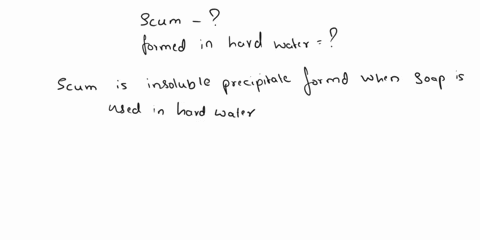 Scum - ?
formed in hard water = ?
Scum is insoluble precipitate formd when soap is
used in hard water